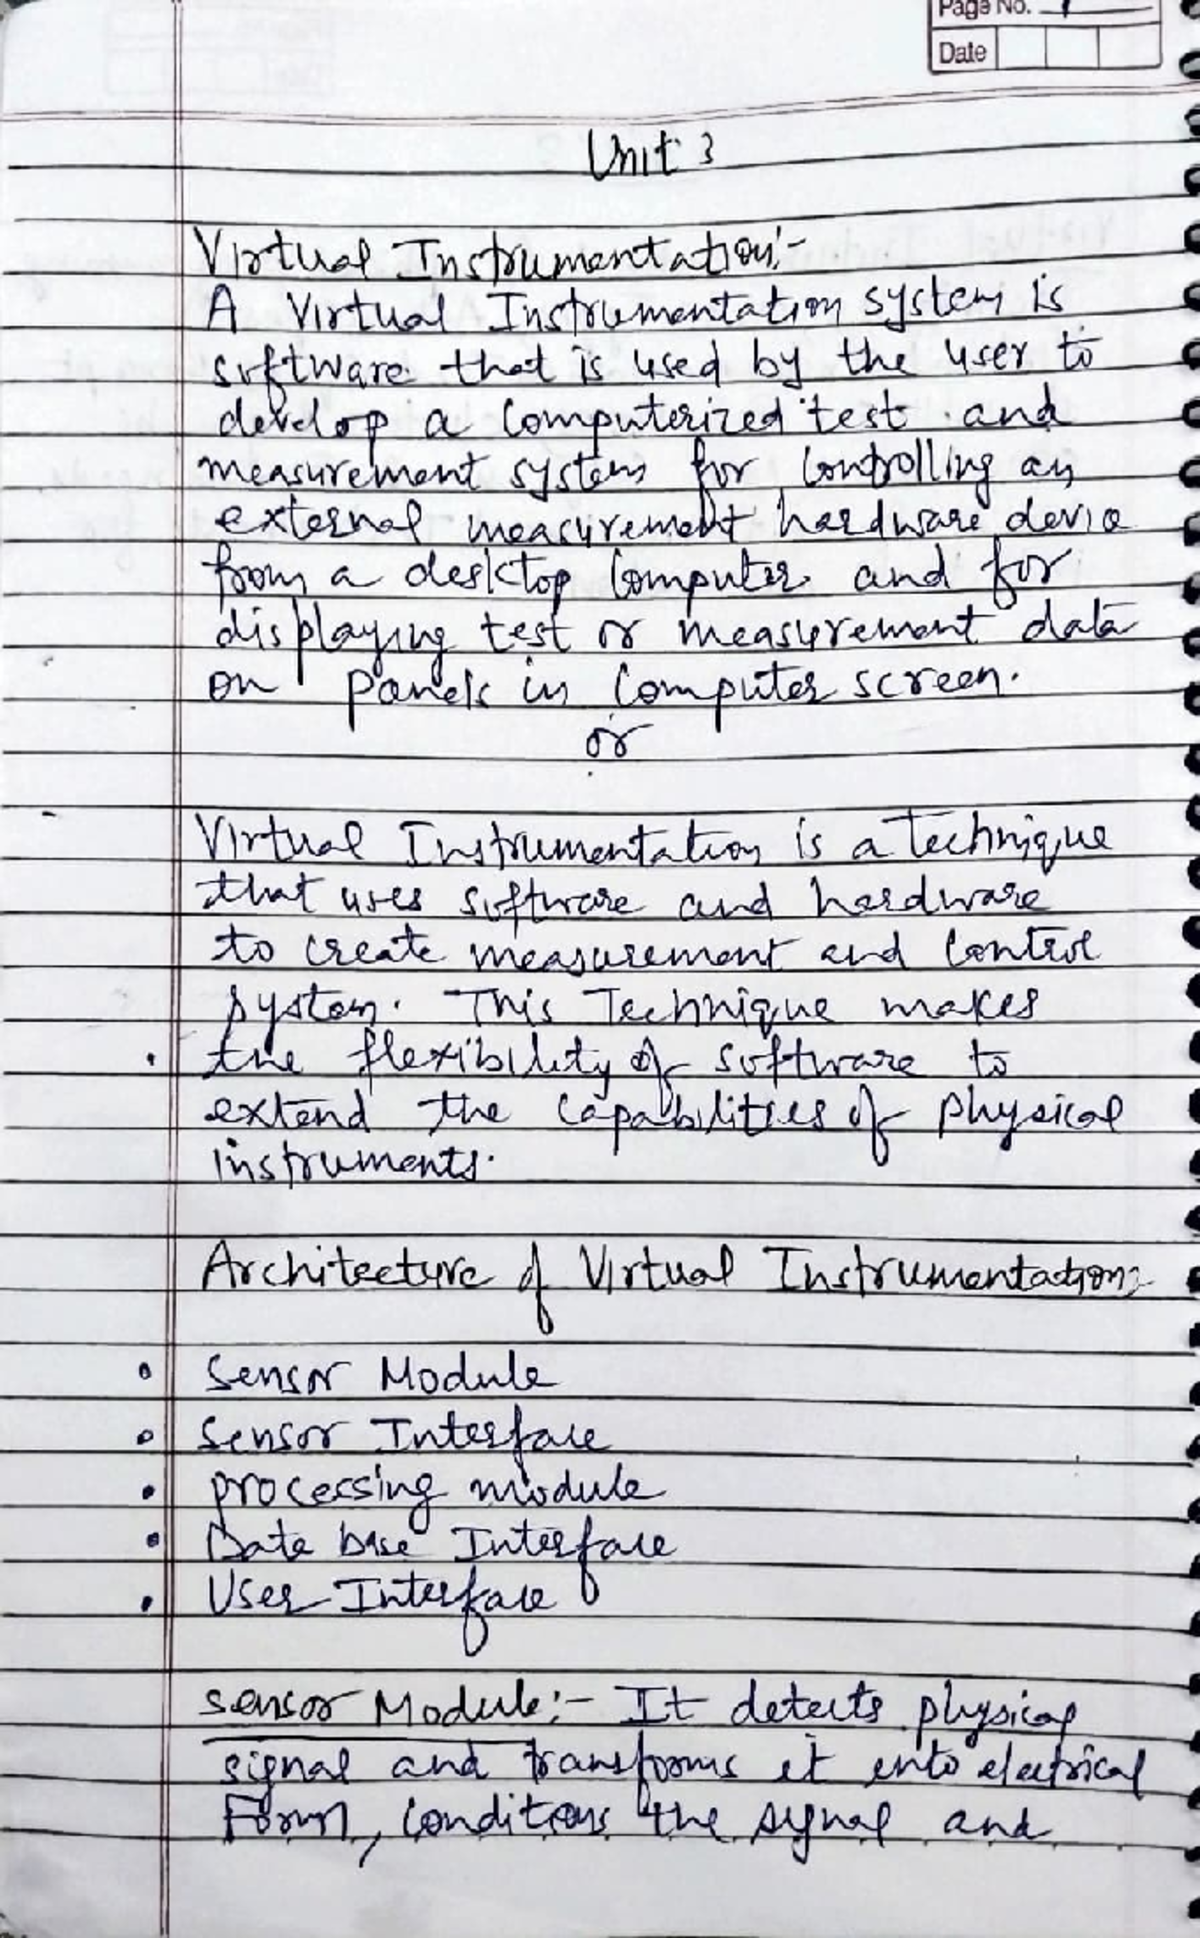 Page No. 1
Date
Unit 3
Virtual Instrumentation:-
A Virtual Instrumentation system is
software that is used by the user to
develop a computerized test and
measurement system for controlling an
external measurement hardware device
from a desktop computer and for
displaying test or measurement data
on panels in computer screen.
or
Virtual Instrumentation is a technique
that uses software and hardware
to create measurement and control
system. This Technique makes
the flexibility of software to
extend the capabilities of physical
instruments.
Architecture of Virtual Instrumentation:-
• Sensor Module
• Sensor Interface
• processing module
• Data base Interface
• User Interface
Sensor Module:- It detects physical
signal and transforms it into electrical
Form, conditions the signal and